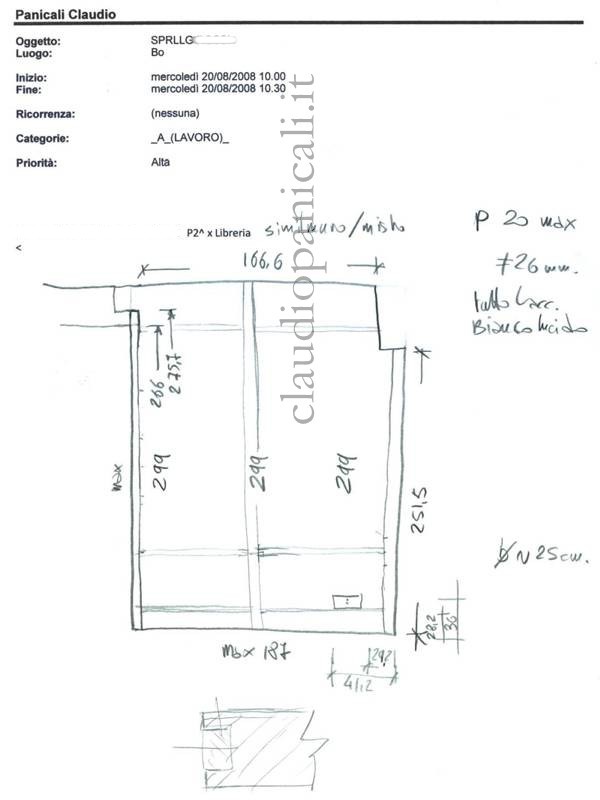 Panicali Claudio
Oggetto: SPRLLG
Luogo: Bo
Inizio: mercoledì 20/08/2008 10.00
Fine: mercoledì 20/08/2008 10.30
Ricorrenza: (nessuna)
Categorie: _A_(LAVORO)_
Priorità: Alta
claudiopanicali.it
P2^ x Libreria
<
P 20 max
166,6
≠26 mm.
tutto Lacc.
Bianco lucido
266
275,7
max
299
299
299
251,5
N 25 cm.
28,2
36
max 187
29,2
41,2